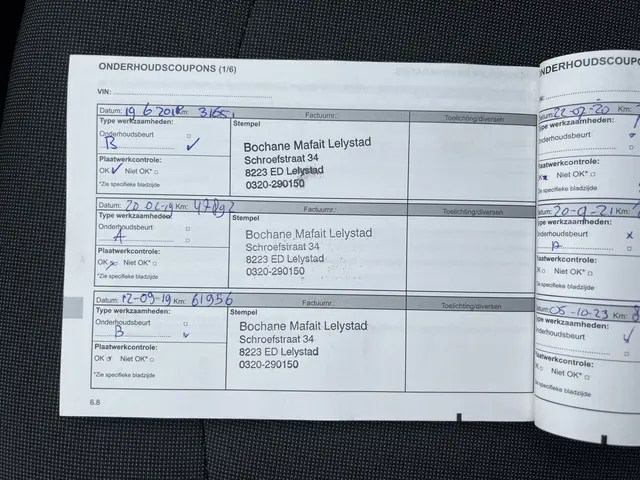 ONDERHOUDSCOUPONS (1/6)
VIN:
Datum: 19 6 201 Km:
Factuurnr.:
Toelichting/diversen
Type werkzaamheden:
Onderhoudsbeurt
B
Plaatwerkcontrole:
OK Niet OK*
*Zie specifieke bladzijde
Stempel
Bochane Mafait Lelystad
Schroefstraat 34
8223 ED Lelystad
0320-290150
Datum: 20 02-19 Km: 47892
Factuurnr.:
Toelichting/diversen
Type werkzaamheden:
Onderhoudsbeurt
A
Plaatwerkcontrole:
OK Niet OK*
*Zie specifieke bladzijde
Stempel
Bochane Mafait Lelystad
Schroefstraat 34
8223 ED Lelystad
0320-290150
Datum: 12-09-19 Km: 61956
Factuurnr.:
Toelichting/diversen
Type werkzaamheden:
Onderhoudsbeurt
B
Plaatwerkcontrole:
OK Niet OK*
*Zie specifieke bladzijde
Stempel
Bochane Mafait Lelystad
Schroefstraat 34
8223 ED Lelystad
0320-290150
6.8
NDERHOUDSCOUPO
Datum: 22-07-20 Km:
Type werkzaamheden:
Onderhoudsbeurt
Plaatwerkcontrole:
Niet OK*
Zie specifieke bladzijde
Datum: 20-9-21 Km:
Type werkzaamheden:
Onderhoudsbeurt
A
Plaatwerkcontrole:
Niet OK*
Zie specifieke bladzijde
Datum: 05-10-23 Km: 8
Type werkzaamheden:
Onderhoudsbeurt
Plaatwerkcontrole:
Niet OK*
Zie specifieke bladzijde